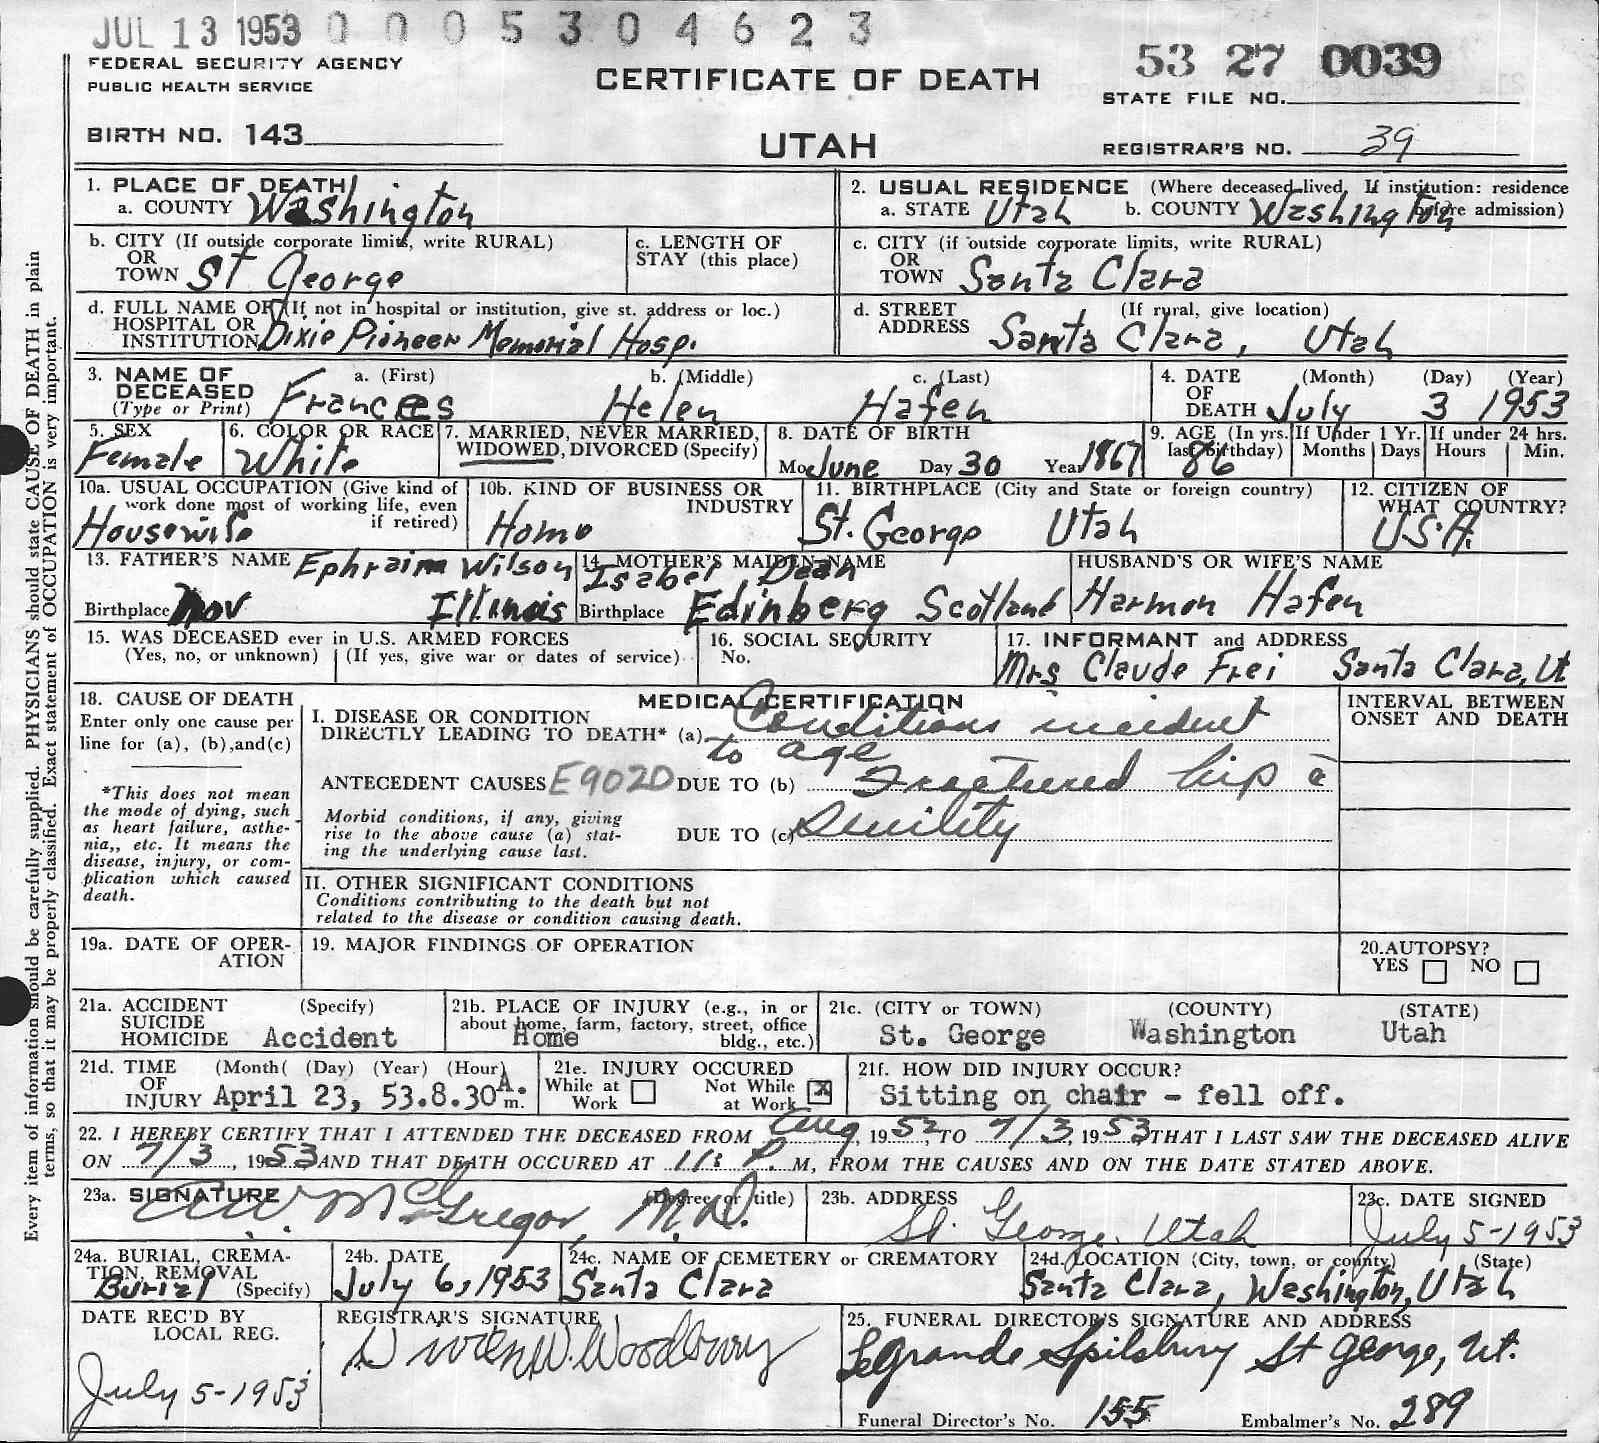 JUL 13 1953 0 0 0 5 3 0 4 6 2 3
53 27 0039
FEDERAL SECURITY AGENCY
PUBLIC HEALTH SERVICE
CERTIFICATE OF DEATH
STATE FILE NO.
BIRTH NO. 143
UTAH
REGISTRAR'S NO. 39
Every item of information should be carefully supplied. PHYSICIANS should state CAUSE OF DEATH in plain
terms, so that it may be properly classified. Exact statement of OCCUPATION is very important.
1. PLACE OF DEATH
a. COUNTY Washington
2. USUAL RESIDENCE (Where deceased lived. If institution: residence before admission)
a. STATE Utah b. COUNTY Washington
b. CITY (If outside corporate limits, write RURAL)
OR
TOWN St George
c. LENGTH OF
STAY (this place)
c. CITY (if outside corporate limits, write RURAL)
OR
TOWN Santa Clara
d. FULL NAME OF (If not in hospital or institution, give st. address or loc.)
HOSPITAL OR
INSTITUTION Dixie Pioneer Memorial Hosp.
d. STREET (If rural, give location)
ADDRESS Santa Clara, Utah
3. NAME OF a. (First) b. (Middle) c. (Last)
DECEASED
(Type or Print) Frances Helen Hafen
4. DATE (Month) (Day) (Year)
OF
DEATH July 3 1953
5. SEX
Female
6. COLOR OR RACE
White
7. MARRIED, NEVER MARRIED,
WIDOWED, DIVORCED (Specify)
8. DATE OF BIRTH
Mo. June Day 30 Year 1867
9. AGE (In yrs. last birthday) 86
If Under 1 Yr.
Months Days
If under 24 hrs.
Hours Min.
10a. USUAL OCCUPATION (Give kind of
work done most of working life, even
if retired)
Housewife
10b. KIND OF BUSINESS OR
INDUSTRY
Home
11. BIRTHPLACE (City and State or foreign country)
St. George Utah
12. CITIZEN OF
WHAT COUNTRY?
U.S.A.
13. FATHER'S NAME Ephraim Wilson
Birthplace Nov Illinois
14. MOTHER'S MAIDEN NAME
Isabel Dean
Birthplace Edinberg Scotland
HUSBAND'S OR WIFE'S NAME
Harmon Hafen
15. WAS DECEASED ever in U.S. ARMED FORCES
(Yes, no, or unknown) (If yes, give war or dates of service)
16. SOCIAL SECURITY
No.
17. INFORMANT and ADDRESS
Mrs Claude Frei Santa Clara, Ut
18. CAUSE OF DEATH
Enter only one cause per
line for (a), (b), and (c)
*This does not mean
the mode of dying, such
as heart failure, asthe-
nia,, etc. It means the
disease, injury, or com-
plication which caused
death.
MEDICAL CERTIFICATION
I. DISEASE OR CONDITION
DIRECTLY LEADING TO DEATH* (a) Conditions incident
to age
ANTECEDENT CAUSES E902D DUE TO (b) Fractured hip c̄
Morbid conditions, if any, giving
rise to the above cause (a) stat-
ing the underlying cause last.
DUE TO (c) Senility
INTERVAL BETWEEN
ONSET AND DEATH
II. OTHER SIGNIFICANT CONDITIONS
Conditions contributing to the death but not
related to the disease or condition causing death.
19a. DATE OF OPER-
ATION
19. MAJOR FINDINGS OF OPERATION
20. AUTOPSY?
YES NO
21a. ACCIDENT (Specify)
SUICIDE
HOMICIDE Accident
21b. PLACE OF INJURY (e.g., in or
about home, farm, factory, street, office
bldg., etc.)
Home
21c. (CITY or TOWN) (COUNTY) (STATE)
St. George Washington Utah
21d. TIME (Month( (Day) (Year) (Hour)
OF
INJURY April 23, 53.8.30 A.m.
21e. INJURY OCCURED
While at Work
Not While at Work X
21f. HOW DID INJURY OCCUR?
Sitting on chair - fell off.
22. I HEREBY CERTIFY THAT I ATTENDED THE DECEASED FROM Aug, 1952, TO 7/3, 1953 THAT I LAST SAW THE DECEASED ALIVE
ON 7/3, 1953 AND THAT DEATH OCCURED AT 11: P. M, FROM THE CAUSES AND ON THE DATE STATED ABOVE.
23a. SIGNATURE (Degree or title)
McGregor, M.D.
23b. ADDRESS
St. George, Utah
23c. DATE SIGNED
July 5-1953
24a. BURIAL, CREMA-
TION, REMOVAL
(Specify)
Burial
24b. DATE
July 6, 1953
24c. NAME OF CEMETERY or CREMATORY
Santa Clara
24d. LOCATION (City, town, or county) (State)
Santa Clara, Washington, Utah
DATE REC'D BY
LOCAL REG.
July 5-1953
REGISTRAR'S SIGNATURE
W. Woodbury
25. FUNERAL DIRECTOR'S SIGNATURE AND ADDRESS
LeGrande Spilsbury St George, Ut.
Funeral Director's No. 155 Embalmer's No. 289